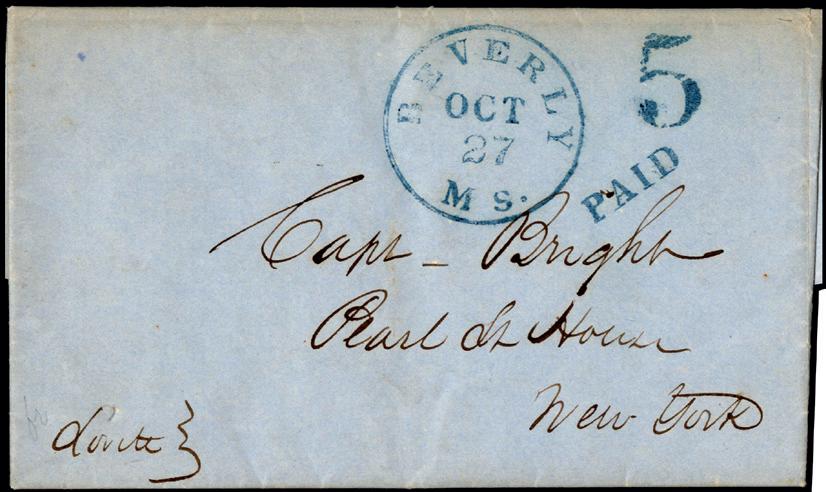 BEVERLY
OCT
27
MS.
5
PAID
Capt - Bright
Pearl St House
New York
Lovett }